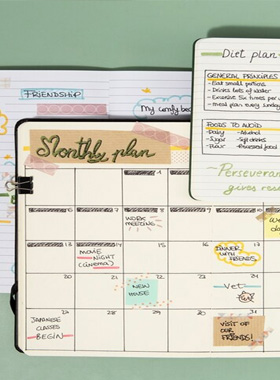 FRIENDSHIP
My comfy bed
Diet plan
GENERAL PRINCIPLES
- Eat small portions
- Drink lots of water
- Excersise
- meal plan every Sunday
FOODS TO AVOID
- Dairy
- Alcohol
- Sugar
- Soft drinks
- Flour
- Processed food
Perseverance
gives
Monthly plan
1
WORK
MEETING
MOVIE
NIGHT
(cinema)
DINNER
WITH
FRIENDS
20
21
22
23
24
NEW
HOUSE
Vet
JAPANESE
CLASSES
BEGIN
VISIT OF
OUR
FRIENDS!